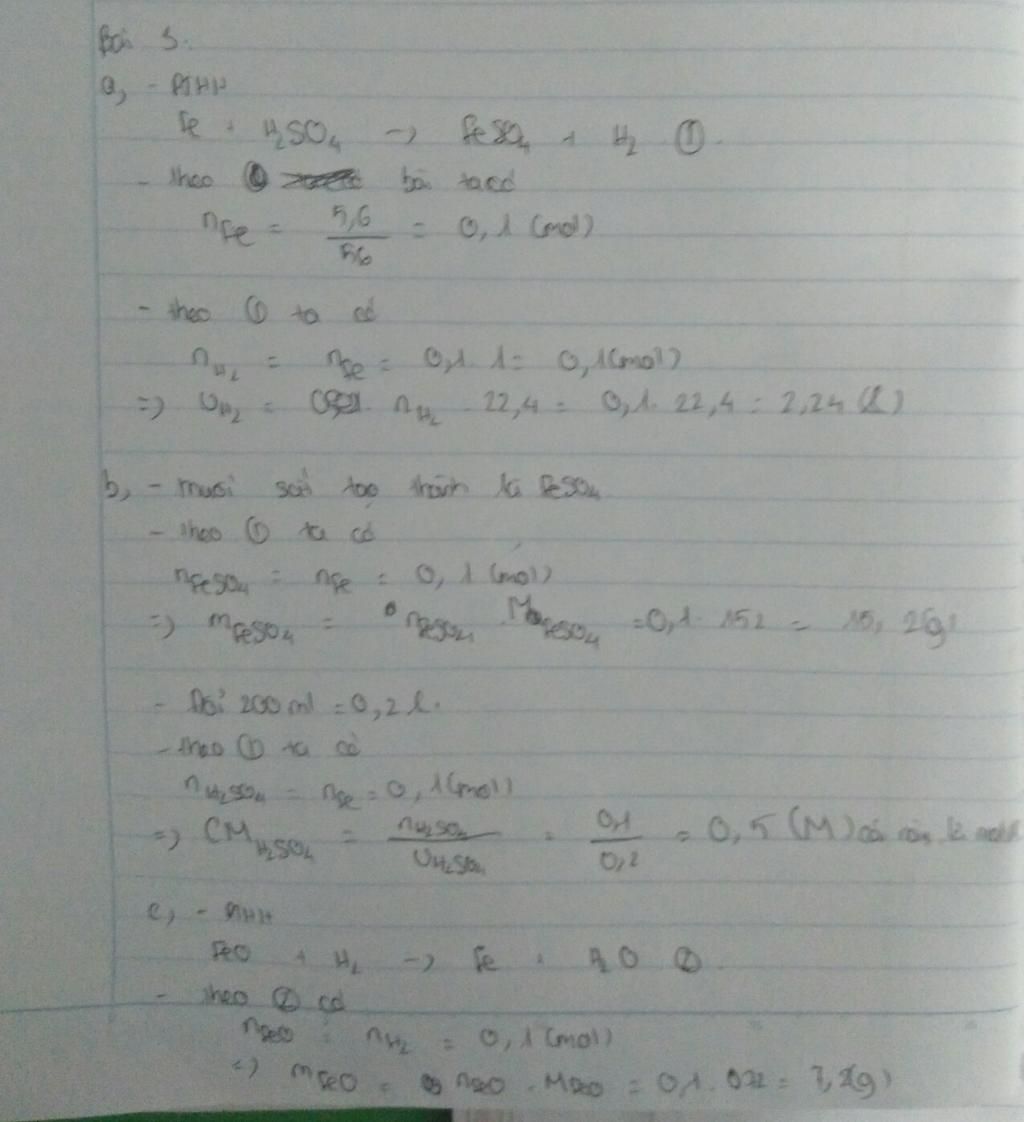 Bài 5.
a, - PTHH
Fe + H₂SO₄ -> FeSO₄ + H₂ ①.
- theo bài ta có
nFe = 5,6/56 = 0,1 (mol)
- theo ① ta có
nH₂ = nFe = 0,1. 1 = 0,1 (mol)
=> VH₂ = nH₂ . 22,4 = 0,1. 22,4 = 2,24 (l)
b, - muối sắt tạo thành là FeSO₄
- theo ① ta có
nFeSO₄ = nFe = 0,1 (mol)
=> mFeSO₄ = nFeSO₄ . MFeSO₄ = 0,1. 152 = 15,2(g)
- Đổi 200 ml = 0,2 l.
- theo ① ta có
nH₂SO₄ = nFe = 0,1 (mol)
=> CM H₂SO₄ = nH₂SO₄/VH₂SO₄ = 0,1/0,2 = 0,5 (M)
c, - PTHH
FeO + H₂ -> Fe + H₂O ②
- theo ② có
nFeO = nH₂ = 0,1 (mol)
=> mFeO = nFeO . MFeO = 0,1. 72 = 7,2(g)